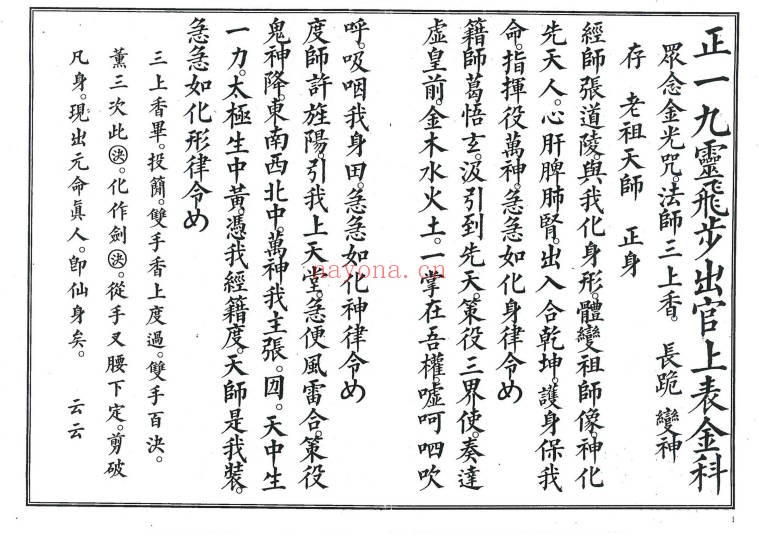 正一九靈飛步出官上表金科
眾念金光咒。法師三上香。 長跪 變神
存 老祖天師 正身
經師張道陵。與我化身形。體變祖師像。神化
先天人。心肝脾肺腎。出入合乾坤。護身保我
命。指揮役萬神。急急如化身律令
籍師葛悟玄。汲引到先天。策役三界使。奏達
虛皇前。金木水火土。一掌在吾權。噓呵呬吹
呼。吸咽我身田。急急如化神律令
度師許旌陽。引我上天堂。急便風雷合。策役
鬼神降。東南西北中。萬神我主張。囸。天中生
一力。太極生中黃。憑我經籍度。天師是我裝。
急急如化形律令
三上香畢。投簡。雙手香上度過。雙手百決。
薰三次此決。化作劍決。從手叉腰下定。剪破
凡身。現出元命眞人。卽仙身矣。 云云
nayona.cn
1